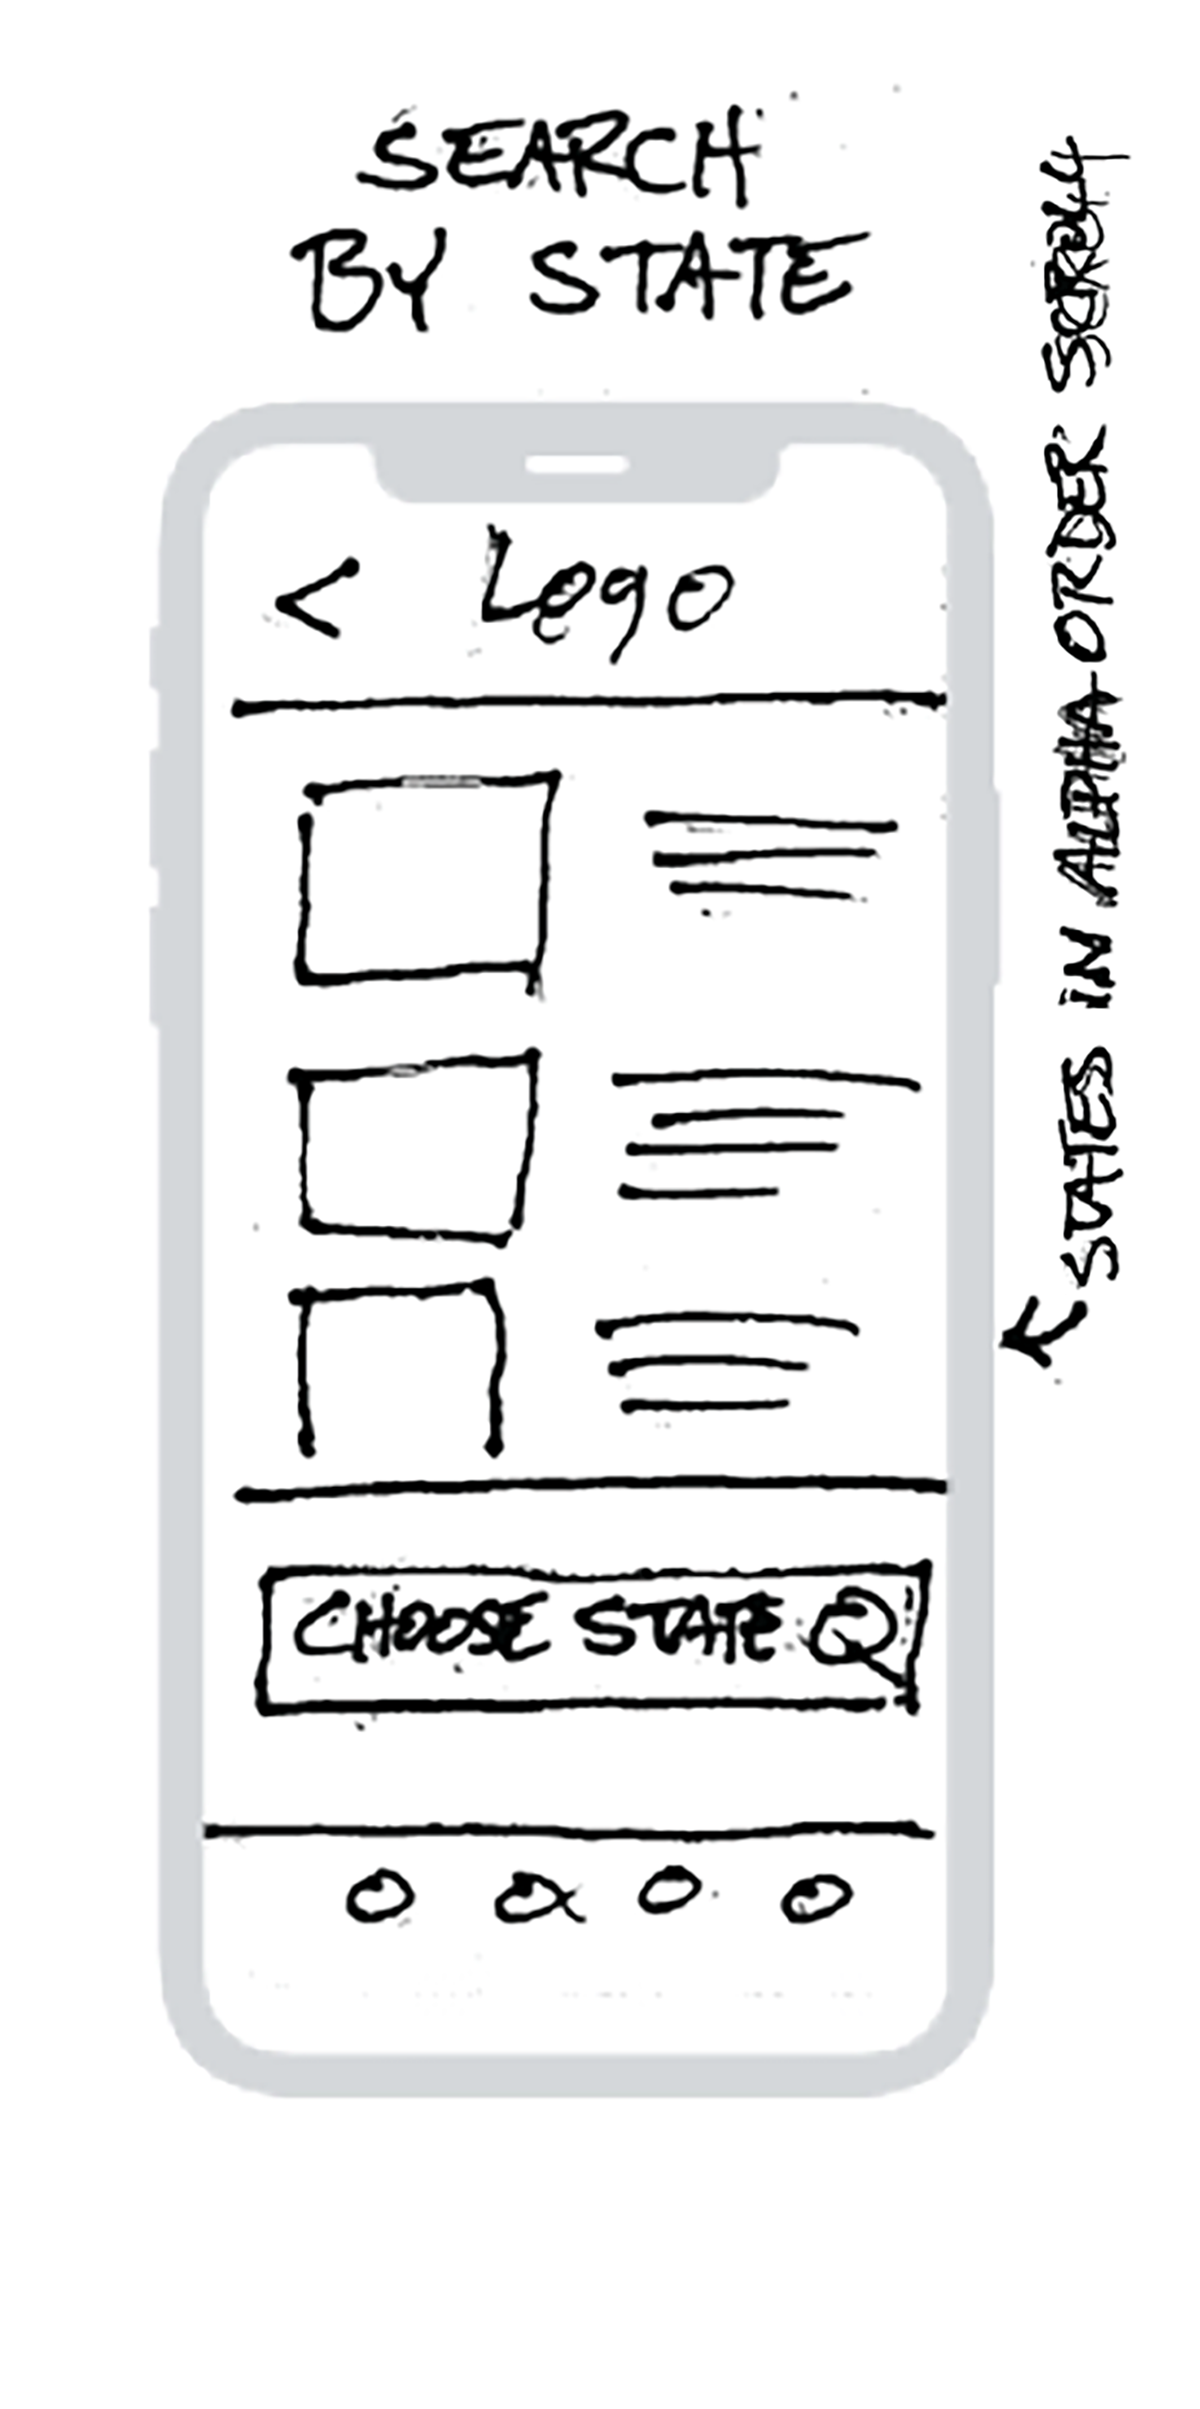 SEARCH
BY STATE
< Logo
CHOOSE STATE
STATES IN ALPHA ORDER SCROLL